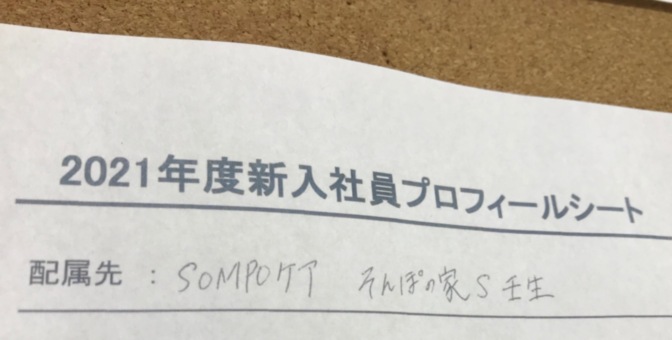 2021年度新入社員プロフィールシート
配属先 : SOMPOケア そんぽの家S 壬生